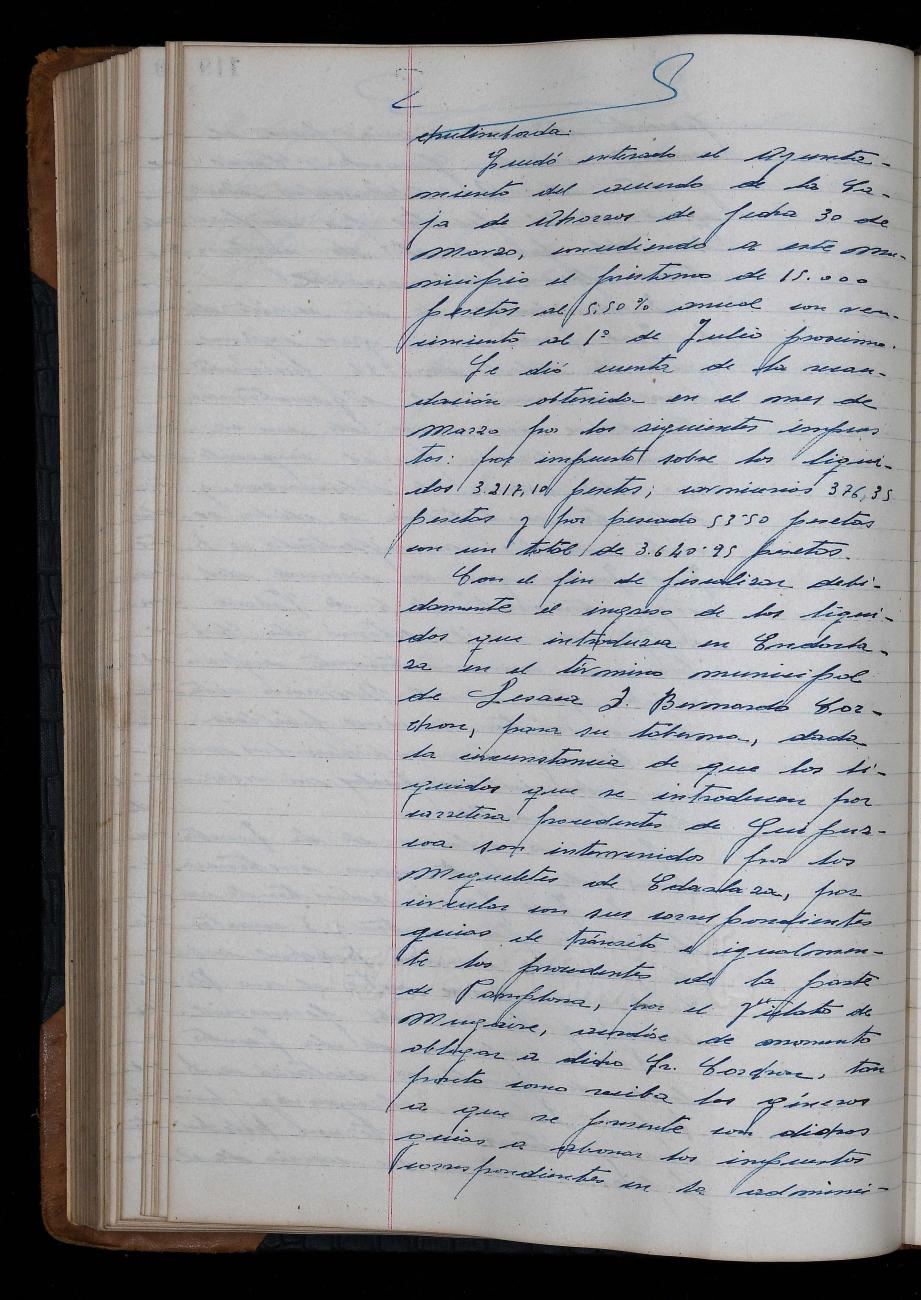 Quedó enterado el Ayunta-
miento del acuerdo de la Ca-
ja de Ahorros de fecha 30 de
Marzo, concediendo a este mu-
nicipio el préstamo de 15.000
pesetas al 5,50% anual con ven-
cimiento al 1º de Julio proximo.
Se dió cuenta de la recau-
dación obtenida en el mes de
Marzo por los siguientes impues
tos: por impuesto sobre los líqui-
dos 3.217,10 pesetas; carnicerias 376,35
pesetas y por pescado 53'50 pesetas
con un total de 3.640'95 pesetas.
Con el fin de fiscalizar debi-
damente el ingreso de los líqui-
dos que introduzca en Endarla-
za en el término municipal
de Lesaca D. Bernardo
para su taberna, dada
la circunstancia de que los lí-
quidos que se introducen por
carretera procedentes de Guipuz-
coa son intervenidos por los
Miqueletes de Edarlaza, por
circular con sus correspondientes
guias de tránsito e igualmen-
te los procedentes de la parte
de Pamplona, por el de
Mugaire, acordóse de momento
obligar a dicho Sr. tan
pronto como reciba los géneros
a que se presente con dichas
guias a abonar los impuestos
correspondientes en la adminis-